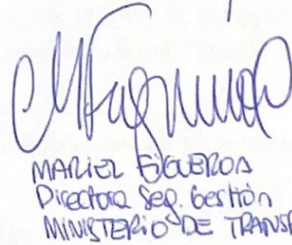 MARIEL FIGUEROA
Directora Seg. Gestión
MINISTERIO DE TRANSP